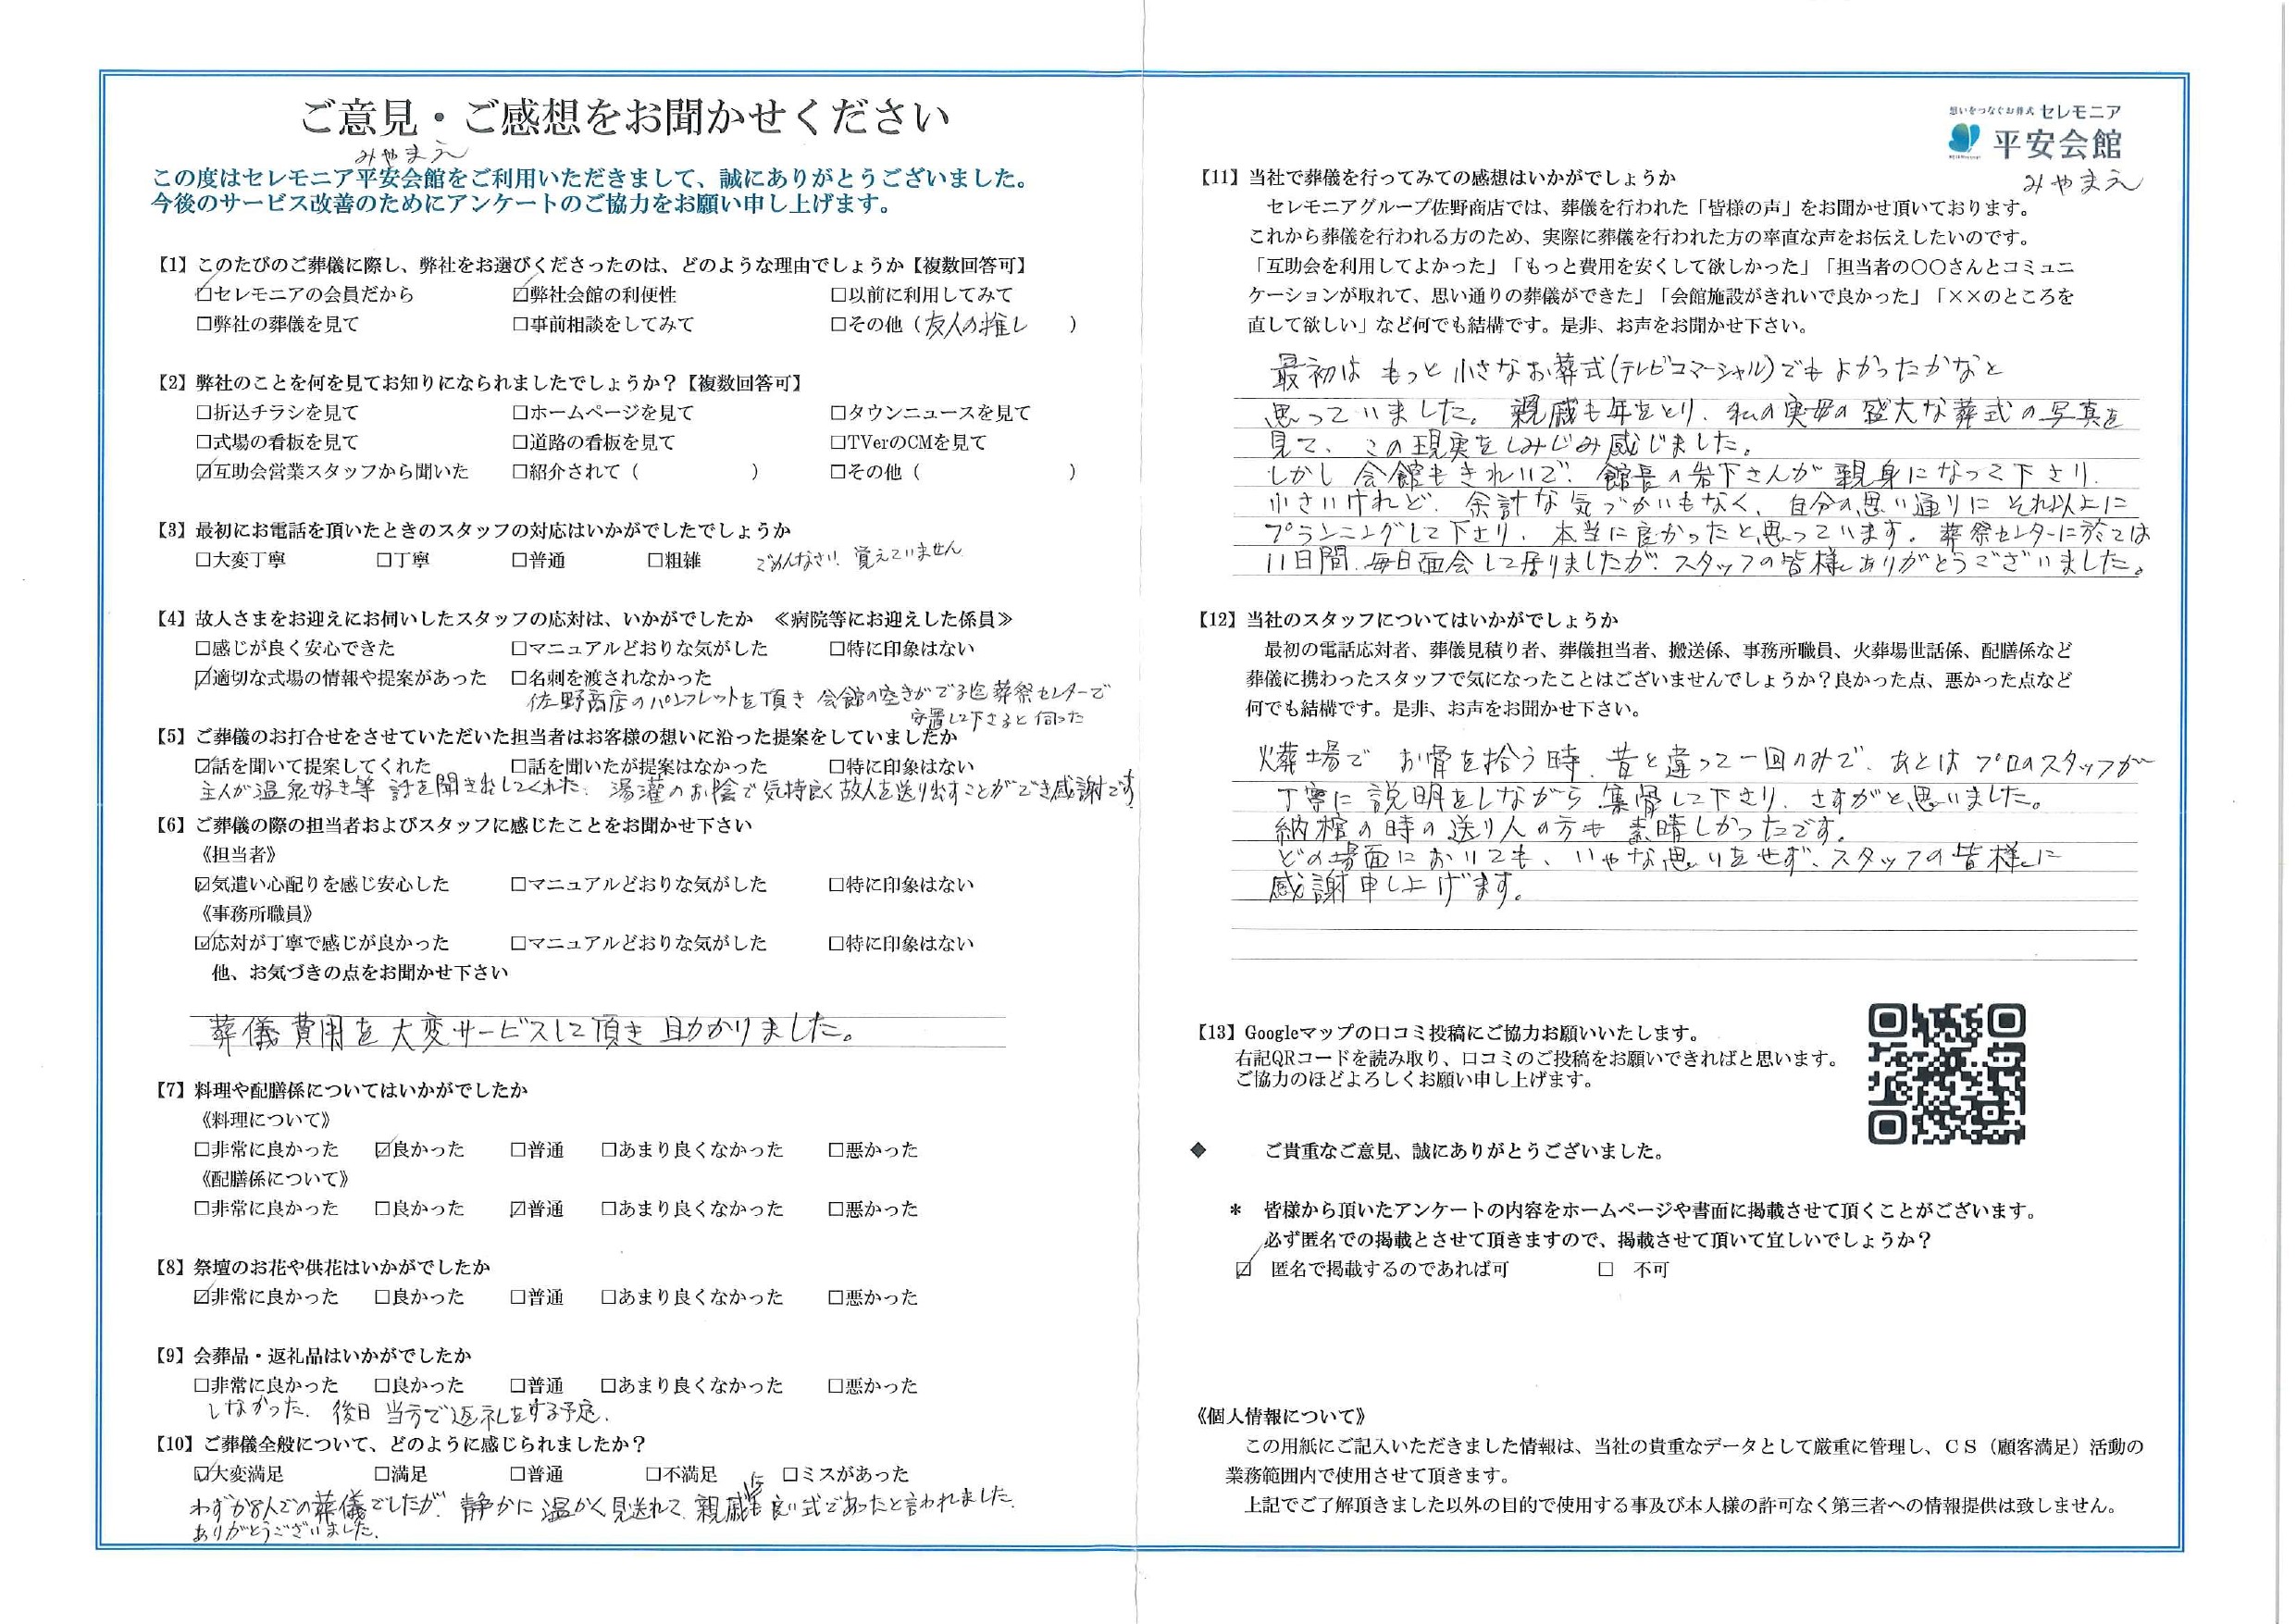 ご意見・ご感想をお聞かせください
みやまえ
この度はセレモニア平安会館をご利用いただきまして、誠にありがとうございました。
今後のサービス改善のためにアンケートのご協力をお願い申し上げます。
【1】このたびのご葬儀に際し、弊社をお選びくださったのは、どのような理由でしょうか【複数回答可】
☑セレモニアの会員だから ☑弊社会館の利便性 □以前に利用してみて
□弊社の葬儀を見て □事前相談をしてみて □その他（友人の推し ）
【2】弊社のことを何を見てお知りになられましたでしょうか？【複数回答可】
□折込チラシを見て □ホームページを見て □タウンニュースを見て
□式場の看板を見て □道路の看板を見て □TVerのCMを見て
☑互助会営業スタッフから聞いた □紹介されて（ ） □その他（ ）
【3】最初にお電話を頂いたときのスタッフの対応はいかがでしたでしょうか
□大変丁寧 □丁寧 □普通 □粗雑 ごめんなさい! 覚えていません
【4】故人さまをお迎えにお伺いしたスタッフの応対は、いかがでしたか ≪病院等にお迎えした係員≫
□感じが良く安心できた □マニュアルどおりな気がした □特に印象はない
☑適切な式場の情報や提案があった □名刺を渡されなかった
佐野商店のパンフレットを頂き 会館の空きがでる迄葬祭センターで
安置して下さると伺った
【5】ご葬儀のお打合せをさせていただいた担当者はお客様の想いに沿った提案をしていましたか
☑話を聞いて提案してくれた □話を聞いたが提案はなかった □特に印象はない
主人が温泉好き等 話を聞き出してくれた、湯灌のお陰で気持良く故人を送り出すことができ感謝です
【6】ご葬儀の際の担当者およびスタッフに感じたことをお聞かせ下さい
《担当者》
☑気遣い心配りを感じ安心した □マニュアルどおりな気がした □特に印象はない
《事務所職員》
☑応対が丁寧で感じが良かった □マニュアルどおりな気がした □特に印象はない
他、お気づきの点をお聞かせ下さい
葬儀費用を大変サービスして頂き 助かりました。
【7】料理や配膳係についてはいかがでしたか
《料理について》
□非常に良かった ☑良かった □普通 □あまり良くなかった □悪かった
《配膳係について》
□非常に良かった □良かった ☑普通 □あまり良くなかった □悪かった
【8】祭壇のお花や供花はいかがでしたか
☑非常に良かった □良かった □普通 □あまり良くなかった □悪かった
【9】会葬品・返礼品はいかがでしたか
□非常に良かった □良かった □普通 □あまり良くなかった □悪かった
しなかった、後日 当方で返礼をする予定。
【10】ご葬儀全般について、どのように感じられましたか？
☑大変満足 □満足 □普通 □不満足 □ミスがあった
わずか8人での葬儀でしたが、静かに温かく見送れて、親戚に良い式であったと言われました。
ありがとうございました。
想いをつなぐお葬式 セレモニア
平安会館
みやまえ
【11】当社で葬儀を行ってみての感想はいかがでしょうか
セレモニアグループ佐野商店では、葬儀を行われた「皆様の声」をお聞かせ頂いております。
これから葬儀を行われる方のため、実際に葬儀を行われた方の率直な声をお伝えしたいのです。
「互助会を利用してよかった」「もっと費用を安くして欲しかった」「担当者の〇〇さんとコミュニ
ケーションが取れて、思い通りの葬儀ができた」「会館施設がきれいで良かった」「××のところを
直して欲しい」など何でも結構です。是非、お声をお聞かせ下さい。
最初は もっと小さなお葬式(テレビコマーシャル)でもよかったかなと
思っていました。親戚も年をとり、私の実母の盛大な葬式の写真を
見て、この現実をしみじみ感じました。
しかし 会館もきれいで、館長の岩下さんが親身になって下さり、
小さいけれど、余計な気づかいもなく、自分の思い通りに それ以上に
プランニングして下さり、本当に良かったと思っています。葬祭センターに於ては
11日間、毎日面会して居りましたが、スタッフの皆様ありがとうございました。
【12】当社のスタッフについてはいかがでしょうか
最初の電話応対者、葬儀見積り者、葬儀担当者、搬送係、事務所職員、火葬場世話係、配膳係など
葬儀に携わったスタッフで気になったことはございませんでしょうか？良かった点、悪かった点など
何でも結構です。是非、お声をお聞かせ下さい。
火葬場で お骨を拾う時、昔と違って一回のみで、あとは プロのスタッフが
丁寧に説明をしながら 集骨して下さり、さすがと思いました。
納棺の時の送り人の方も 素晴しかったです。
どの場面においても、いやな思いをせず、スタッフの皆様に
感謝申し上げます。
【13】Googleマップの口コミ投稿にご協力お願いいたします。
右記QRコードを読み取り、口コミのご投稿をお願いできればと思います。
ご協力のほどよろしくお願い申し上げます。
◆ ご貴重なご意見、誠にありがとうございました。
＊ 皆様から頂いたアンケートの内容をホームページや書面に掲載させて頂くことがございます。
必ず匿名での掲載とさせて頂きますので、掲載させて頂いて宜しいでしょうか？
☑ 匿名で掲載するのであれば可 □ 不可
《個人情報について》
この用紙にご記入いただきました情報は、当社の貴重なデータとして厳重に管理し、ＣＳ（顧客満足）活動の
業務範囲内で使用させて頂きます。
上記でご了解頂きました以外の目的で使用する事及び本人様の許可なく第三者への情報提供は致しません。